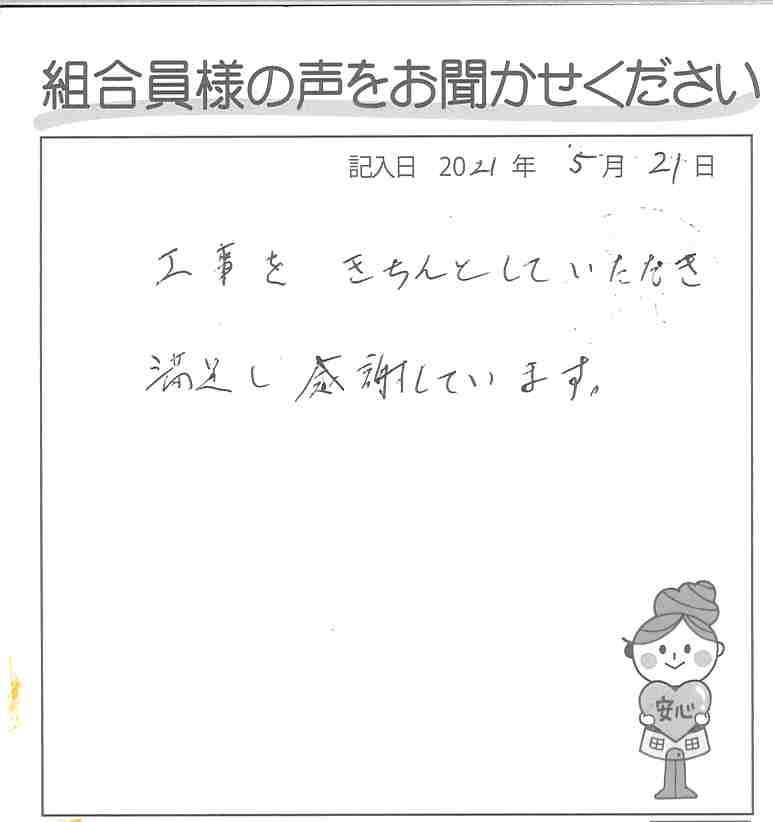 組合員様の声をお聞かせください
記入日 2021年 5月 21日
工事を きちんとしていただき
満足し 感謝しています。
安心